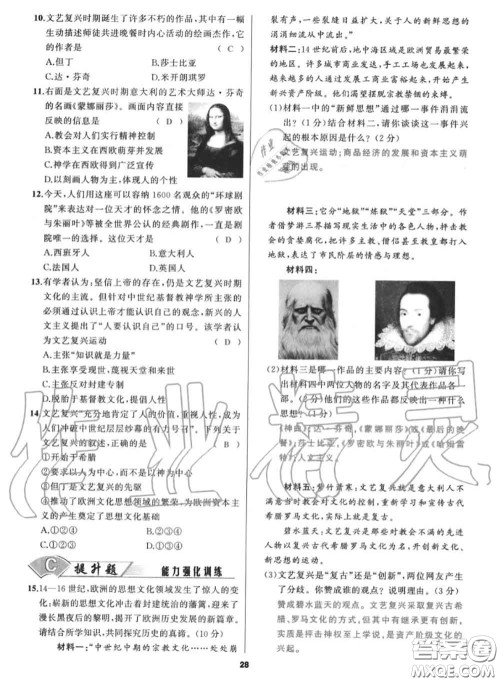 10.文艺复兴时期诞生了许多不朽的作品,其中一幅
生动描述师徒共进晚餐时内心活动的绘画杰作,它
的作者是 ( C )
A.但丁 B.莎士比亚
C.达·芬奇 D.米开朗琪罗
11.右面是文艺复兴时期意大利的艺术大师达·芬奇
的名画《蒙娜丽莎》。画面内容直接
反映的信息是 ( D )
A.教会对人们实行精神控制
B.资本主义在西欧萌芽并发展
C.神学在西欧得到广泛宣传
D.以刻画人物为主,个性十足
12.今天,人们用这座可以容纳 1600 名观众的“环球剧
院”来表达对一位天才的怀念之情,他的《罗密欧
与朱丽叶》等被全世界公认的经典剧作,一直是剧
院唯一的选择。这位天才是 ( B )
A.西班牙人 B.意大利人
C.法国人 D.英国人
13.有学者认为:坚信上帝的存在,仍是文艺复兴时期
文化的主流。但针对中世纪基督教神学所主张的
必须通过认识上帝才能认识自己的观念,新兴的人
文主义提出了“人要认识自己”的口号。该学者认
为文艺复兴运动
A.主张“知识就是力量”
B.主张享受现世、蔑视天堂和来世
C.主张反对封建专制
D.脱胎于基督教文化,提倡人性
14.文艺复兴“充分地肯定了人的价值,重视人性,成为
人们冲破中世纪层层纱幕的有力号召”。下列关于
文艺复兴的叙述,正确的是 ( B )
①开始于希腊
②要求以人为中心,而不是以神为中心
③是文艺复兴的先驱
④推动了欧洲文化思想领域的繁荣,为欧洲资本主
义的产生奠定了思想文化基础
A.①②④ B.②③④
C.①③④ D.①②③
C 提升题 能力强化训练
15.14—16 世纪,欧洲的思想文化领域发生了惊人的变
化,崭新的思想文化冲击着封建统治的藩篱,迎来了
漫长黑夜后的黎明,开创了欧洲历史发展的新篇章。
请结合所学知识,共同探究历史的真谛。(10 分)
材料一:“中世纪中期的宗教文化……处处崩
28
裂有声,一些裂缝日益扩大,代表了人的新鲜思想的
涓涓细流从中突出。”
材料二:14 世纪前后,地中海区域是欧洲贸易最繁荣
的地区。许多城市商业发达,手工工场也发展起来。
越来越多的人发展工商业富裕成名,开始产生
新兴资产阶级。他们渴望摆脱宗教禁锢的束缚。
(1)材料一中的“新鲜思想”通过哪一事件涓涓流
出?(1 分)结合材料二,请你谈谈这一事件兴
起的根本原因是什么?(2 分)
文艺复兴运动;商品经济的发展和资本主义萌
芽的出现。
材料三:它分“地狱”“炼狱”“天堂”三部分。作
者借梦游三界描写现实生活中的各色人物,抨击教
会的贪婪腐化,把许多主教、僧侣甚至教皇都打入
地狱,表达了市民阶层的情感与理想。
材料四:
(2)材料三是哪一作品的主要内容?(1 分)请你写
出材料四中两位人物的名字及其代表作品各一
部。(2分)他们的这些作品都反映出一种什么
思想?(1分)
《神曲》;达·芬奇,《蒙娜丽莎》或《最后的晚
餐》;莎士比亚,《罗密欧与朱丽叶》或《哈姆雷
特》;人文主义。
材料五:紫竹萧寒:文艺复兴就是意大利人不
满意当时教会对文化的控制,重新学习和宣传古代
希腊罗马文化,实际上就是复古。
碧水蓝天:文艺复兴是那些对教会不满的先进
人物以复兴古代希腊罗马文化为名,开创新文化、
新思想的运动。
(3)文艺复兴是“复古”还是“创新”,两位网友产生
了分歧。你赞成谁的观点?请说明理由。(3 分)
赞成碧水蓝天的观点。文艺复兴采取复兴古希
腊、古罗马文化的形式,吸收古典文化的精华,
但其中有继承更有创新。文艺复兴运动的实
质,是抨击神权至上学说,是资产阶级文化的
兴起。